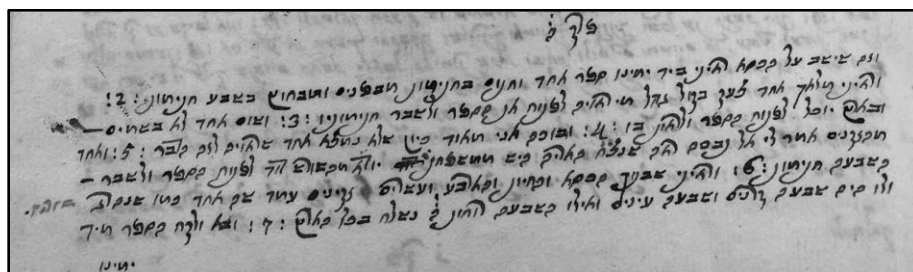 פרק
וגם שישב על הכסא ראיתי ביד ימינו ספר אחד וחתום מבפנים ומבחוץ בשבע חתימות :2:
וראיתי מלאך אחד צעק בקול גדול מי ראוים לפתוח את הספר ולשבר חתימותיו :3: ושום אחד לא בשמים –
ובארץ יוכל לפתוח הספר ולראות בו :4: ובוכה אני מאוד כיון שלא נמצא אחד שראוים לזה הדבר :5: ואחד
מהזקנים אמר לי אל תבכה שנצח יודא מהשורש דוד לפתוח הספר ולשבר –
השבעה חתימות :6: וראיתי שבתוך הכסא והחיות ועשרים זקנים עומד שה אחד כמו שנטבח
ולו היה שבעה קרנים ושבעה עינים ואילו השבעה הרוח נשלח בכל הארץ :7: ובא ולקח הספר מיד
ימינו